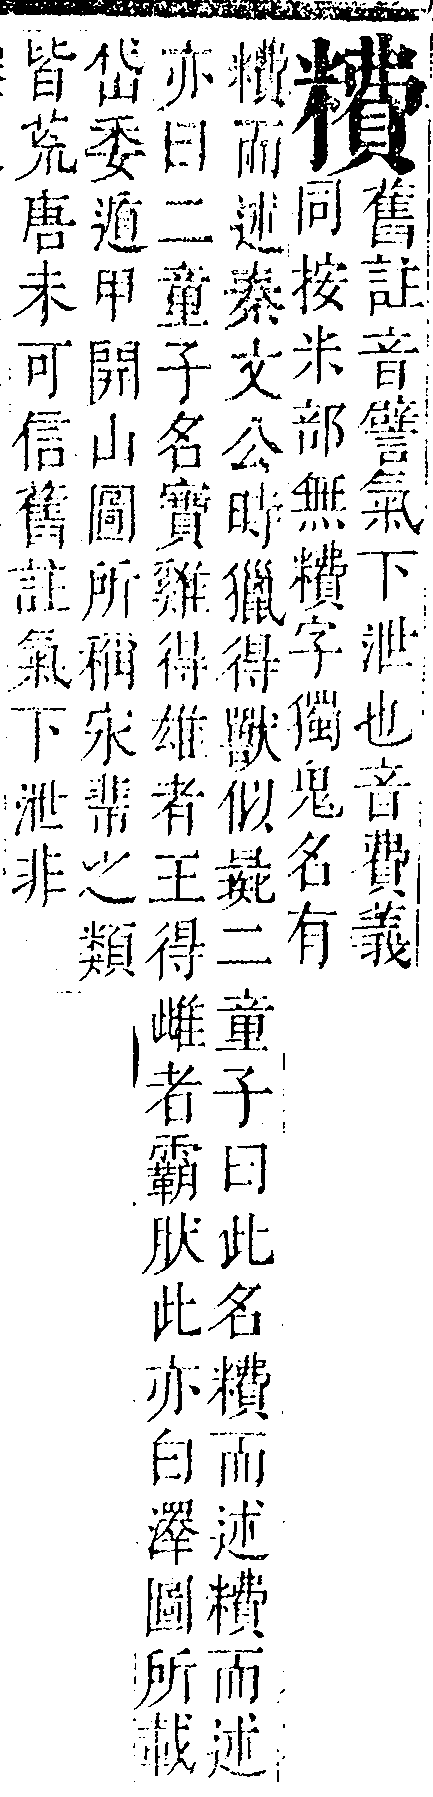 䊧
舊註音譬氣下泄也音費義
同按米部無䊧字獨鬼名有
䊧而述秦文公時獵得獸似彘二童子曰此名䊧而述䊧而述
亦曰二童子名寶雞得雄者王得雌者霸肰此亦白澤圖所載
岱委遁甲開山圖所稱宋之類
皆荒唐未可信舊註氣下泄非